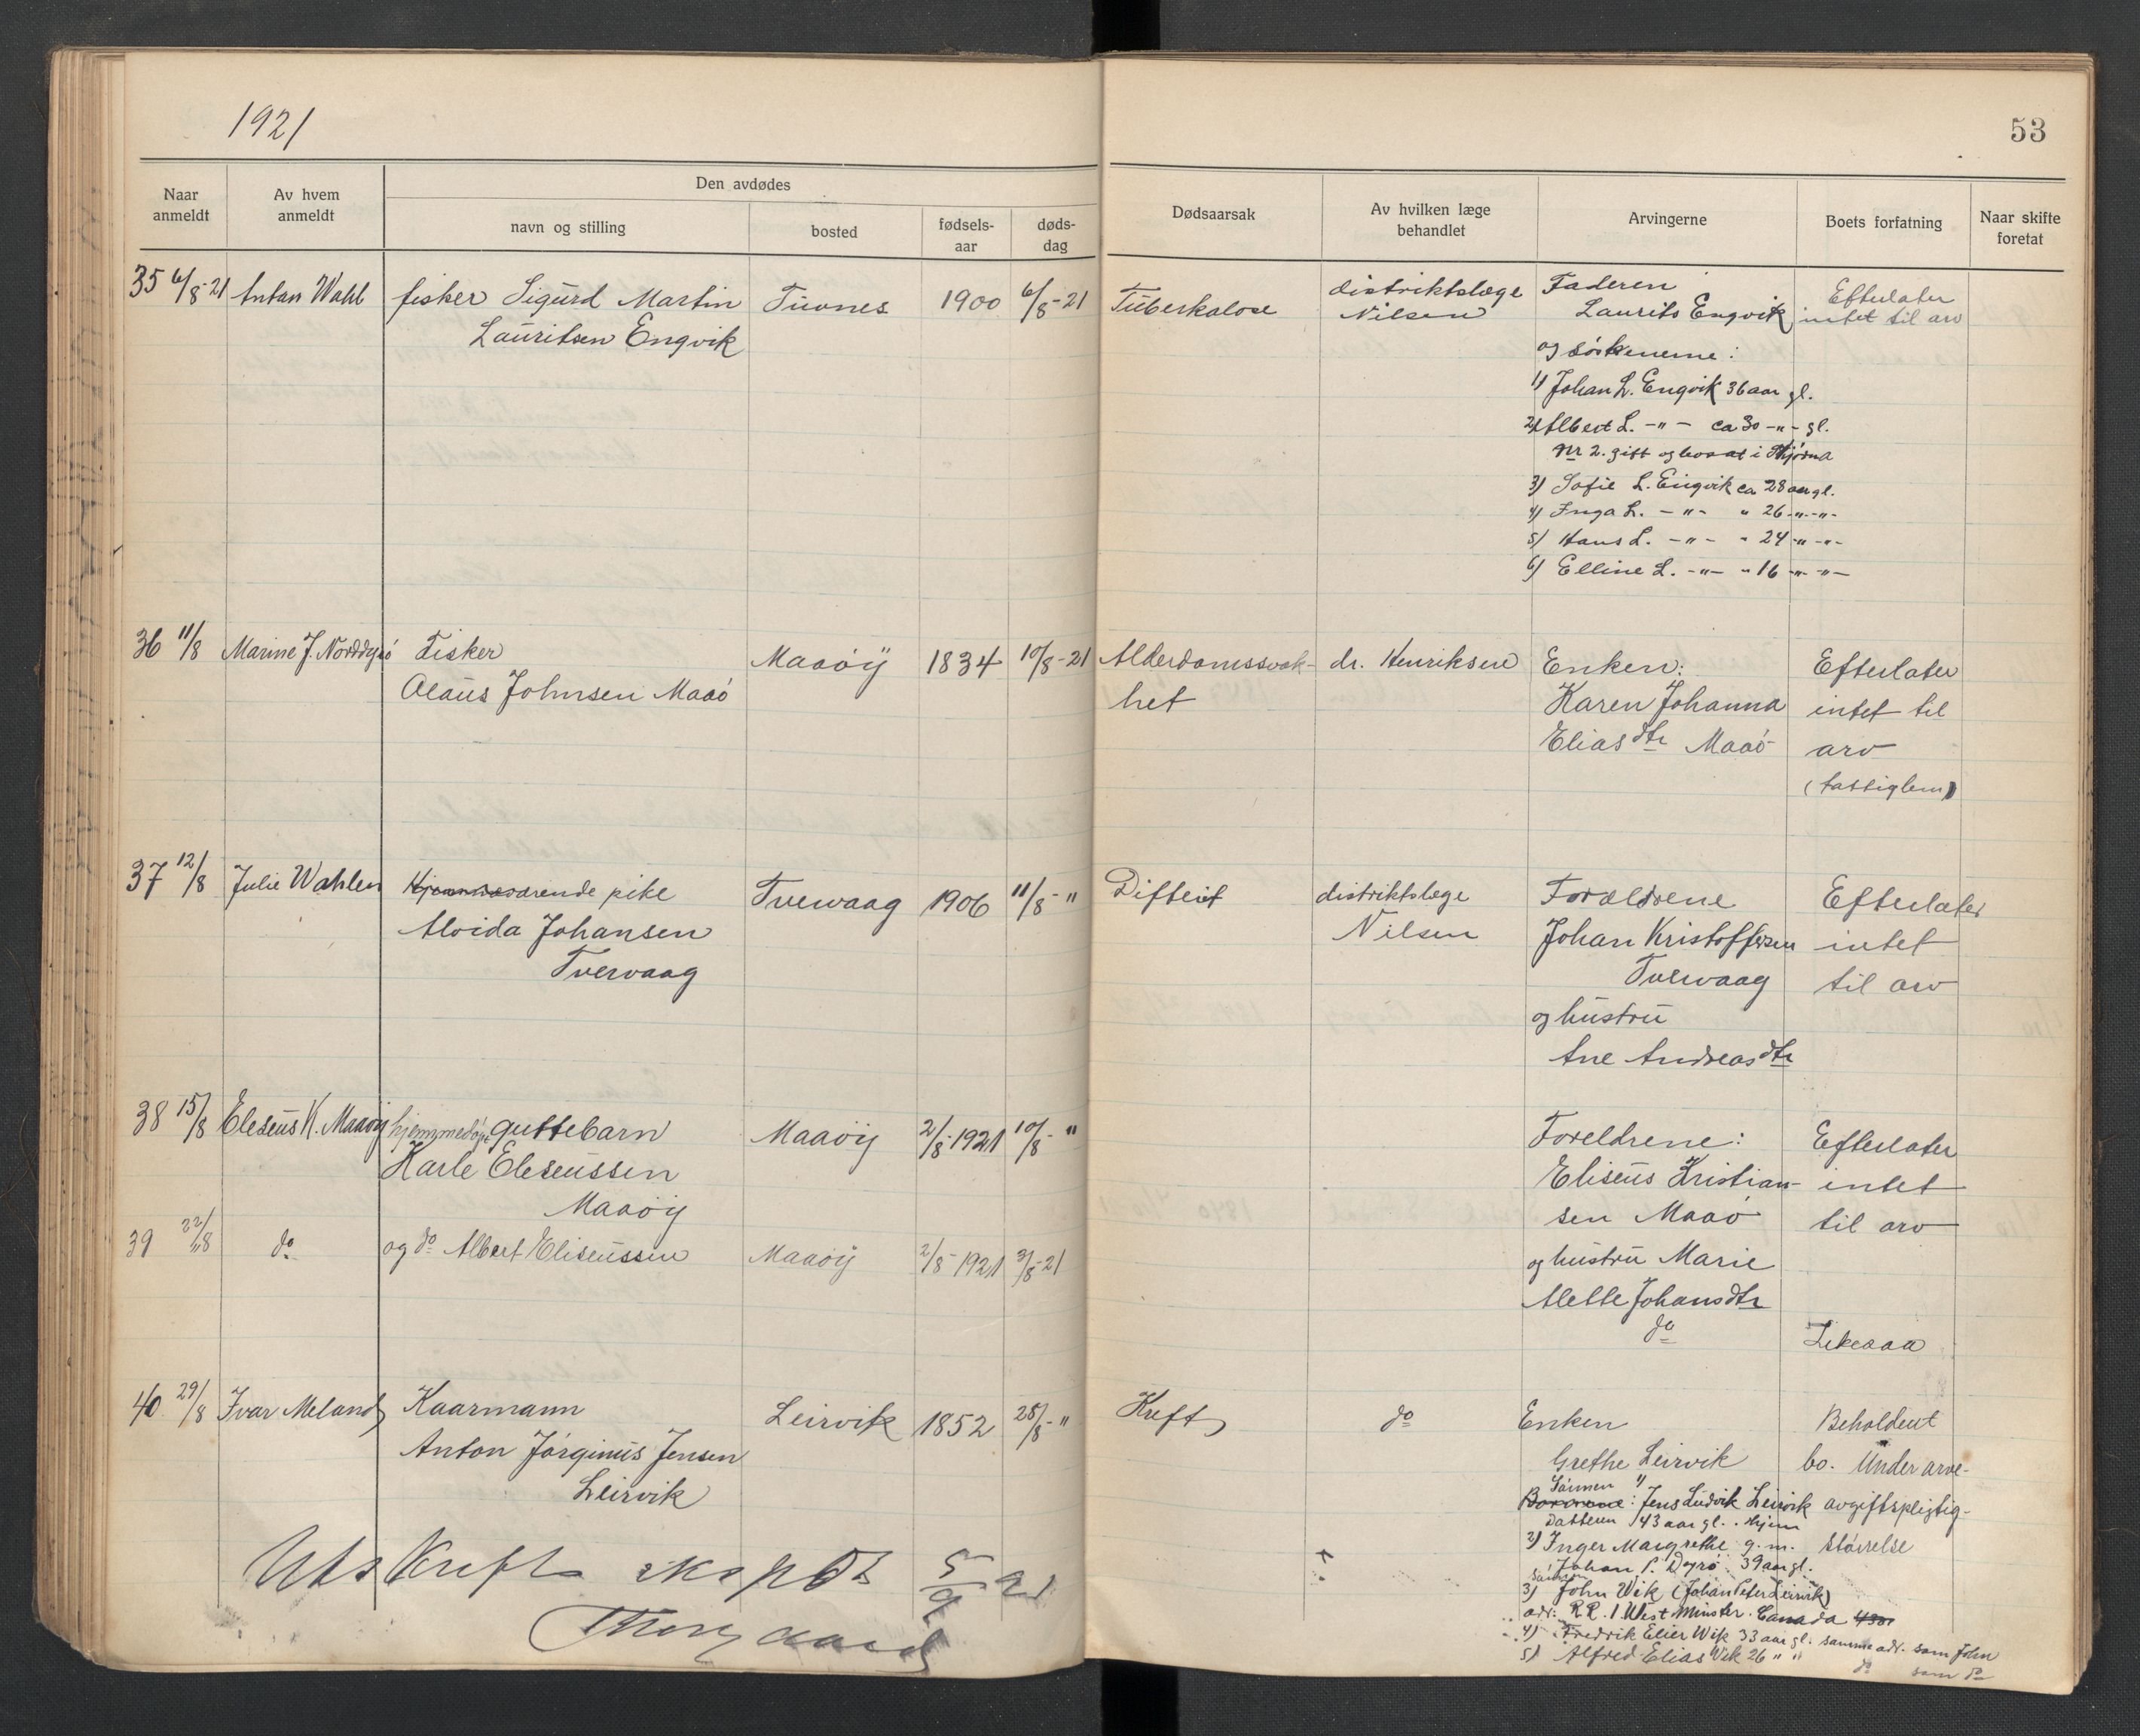 1921
53
Naar anmeldt
Av hvem anmeldt
Den avdødes
navn og stilling
bosted
fødsels-aar
døds-dag
Dødsaarsak
Av hvilken læge behandlet
Arvingerne
Boets forfatning
Naar skifte foretat
35 6/8-21 Anton Wahl fisker Sigurd Martin Tuvnes 1900 6/8-21 Tuberkulose distriktslæge Faderen Efterlater
Lauritsen Engvik Nilsen Laurits Engvik intet til arv
og søskenerne:
1) Johan L. Engvik 36 aar gl.
2) Albert L. -"- ca 30 -"- gl.
Nr 2. gift og bosat i
3) Sofie L. Engvik ca 28 aar gl.
4) Inga L. -"- " 26 -"- -"-
5) Hans L. -"- " 24 -"- -"-
6) Elline L. -"- " 16 -"- -"-
36 11/8 Marine J. Norddyrø Fisker Maaøy 1834 10/8-21 Alderdomssvak- dr. Henriksen Enken: Efterlater
Olaus Johnsen Maaø het Karen Johanna intet til
Elias dtr Maaø arv
(fattiglem)
37 12/8 Julie Wahlen Hjemmeværende pike Tvervaag 1906 11/8-" Difterit distriktslæge Forældrene Efterlater
Alvida Johansen Nilsen Johan Kristoffersen intet
Tvervaag Tvervaag til arv
og hustru
Ane Andreas dtr
38 15/8 Eleseus K. Maaøy hjemmedøpt guttebarn Maaøy 2/8-1921 10/8-" Foreldrene: Efterlater
Karle Eleseussen Eliseus Kristian- intet
Maaøy sen Maaø til arv
39 22/8 do og do Albert Eliseussen Maaøy 2/8-1921 3/8-21 og hustru Marie
Alette Johansdtr
do Likesaa
40 29/8 Ivar Meland Kaarmann Leirvik 1852 28/8-" Kreft do Enken Beholdent
Anton Jørginus Jensen Grethe Leirvik bo. Under arve-
Leirvik Sønnen 1) : Jens Ludvik Leirvik avgiftspligtig
Datteren 43 aar gl. Hjem
2) Inger Margrethe g. m. størrelse
Johan P. Dyrø 39 aar gl.
Sønnen
3) John Wik (Johan Peter Leirvik)
adr: R.R. 1 West Minster. Canada
4) Fredrik Elier Wik 33 aar gl. samme adr. som John
5) Alfred Elias Wik 26 " " do som do
Utskrift skapt 5/9 21